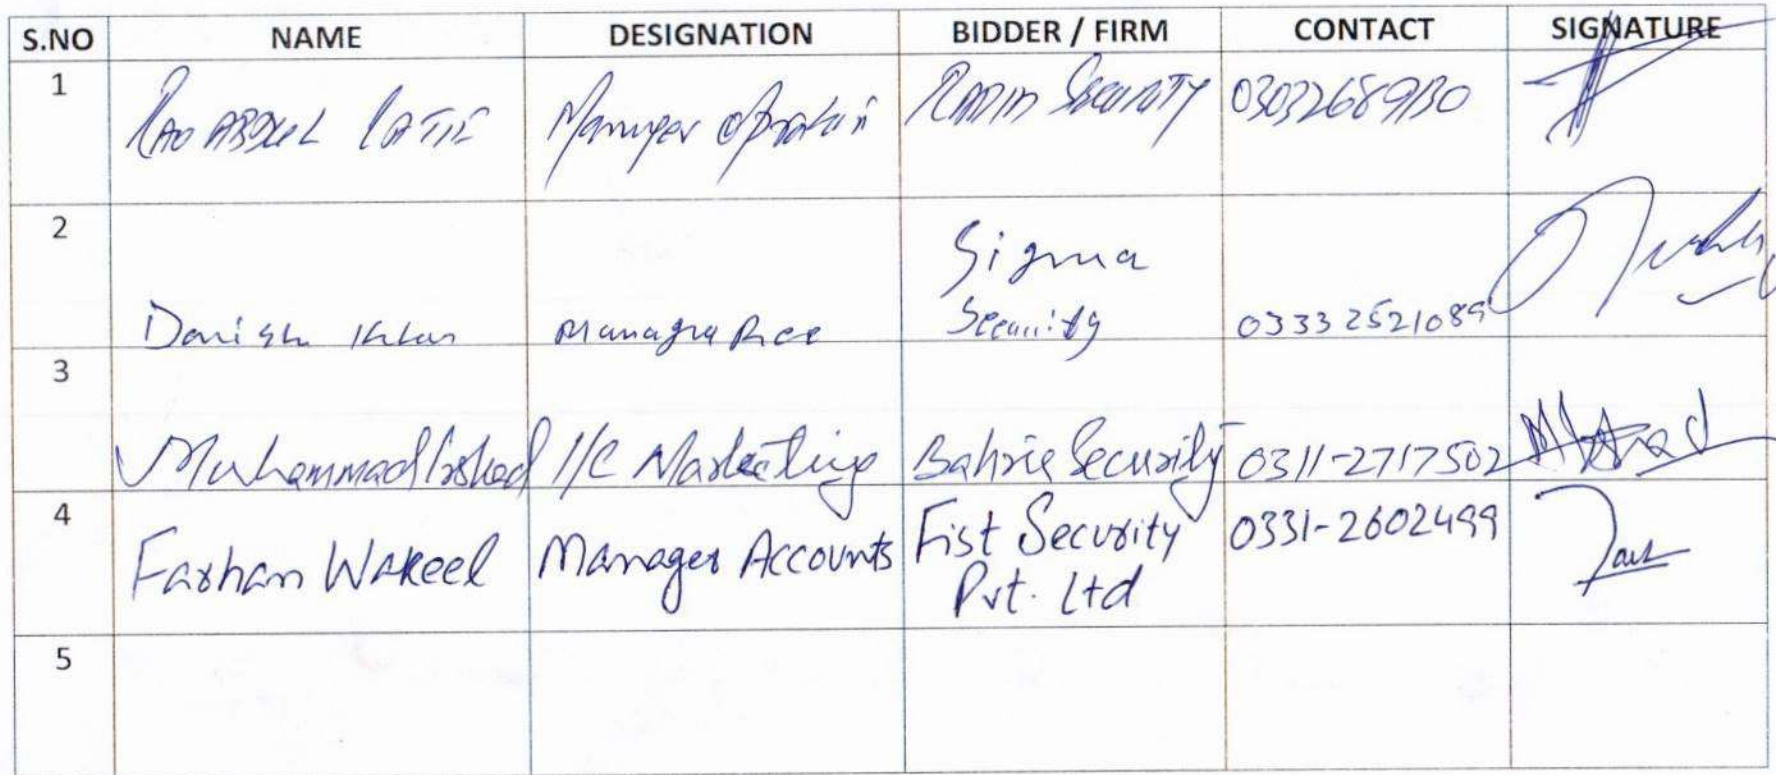 S.NO NAME DESIGNATION BIDDER / FIRM CONTACT SIGNATURE
1 RAO ABDUL LATIF Manager Security 03032689130
2 Danish Khan Sigma
Security 03332521089
3 Muhammad Irshad I/C Marketing Bahria Security 0311-2717502
4 Farhan Wakeel Manager Accounts Fist Security 0331-2602499
Pvt. Ltd
5